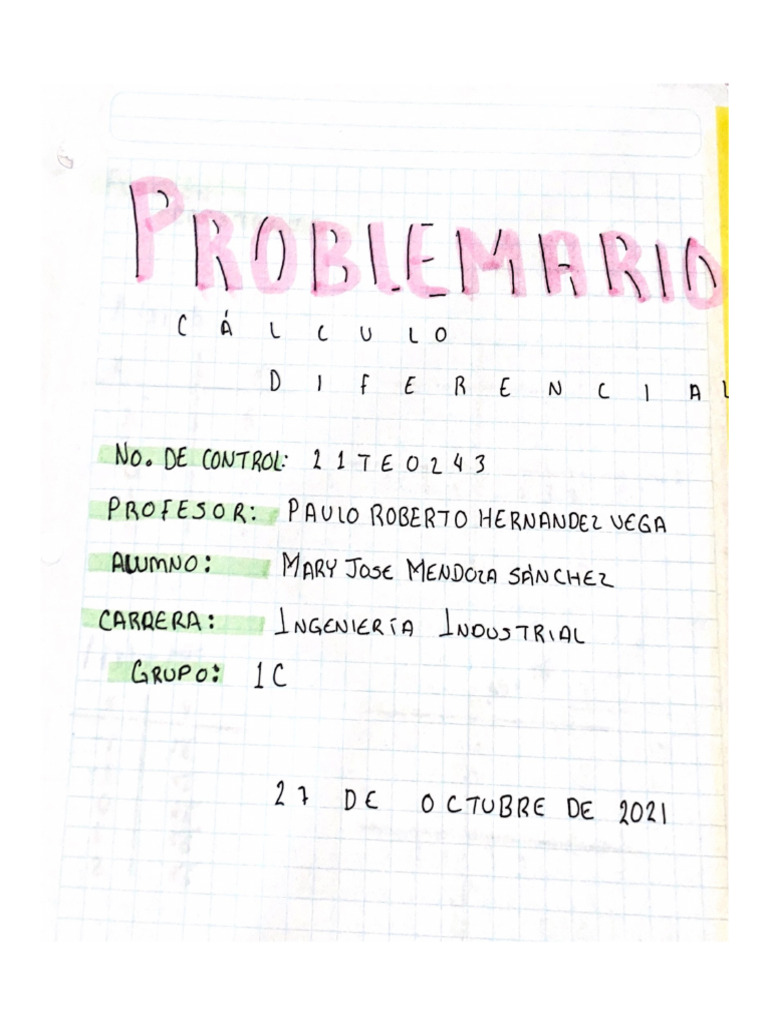 PROBLEMARIO
CÁLCULO
DIFERENCIAL
No. DE CONTROL: 21TE0243
PROFESOR: PAULO ROBERTO HERNANDEZ VEGA
ALUMNO: MARY JOSE MENDOZA SÁNCHEZ
CARRERA: INGENIERÍA INDUSTRIAL
GRUPO: 1C
27 DE OCTUBRE DE 2021